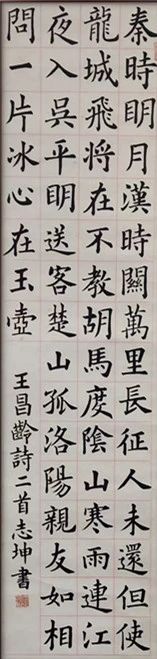 秦時明月漢時關萬里長征人未還但使
龍城飛将在不教胡馬度陰山寒雨連江
夜入吳平明送客楚山孤洛陽親友如相
問一片冰心在玉壺
王昌齡詩二首志坤書